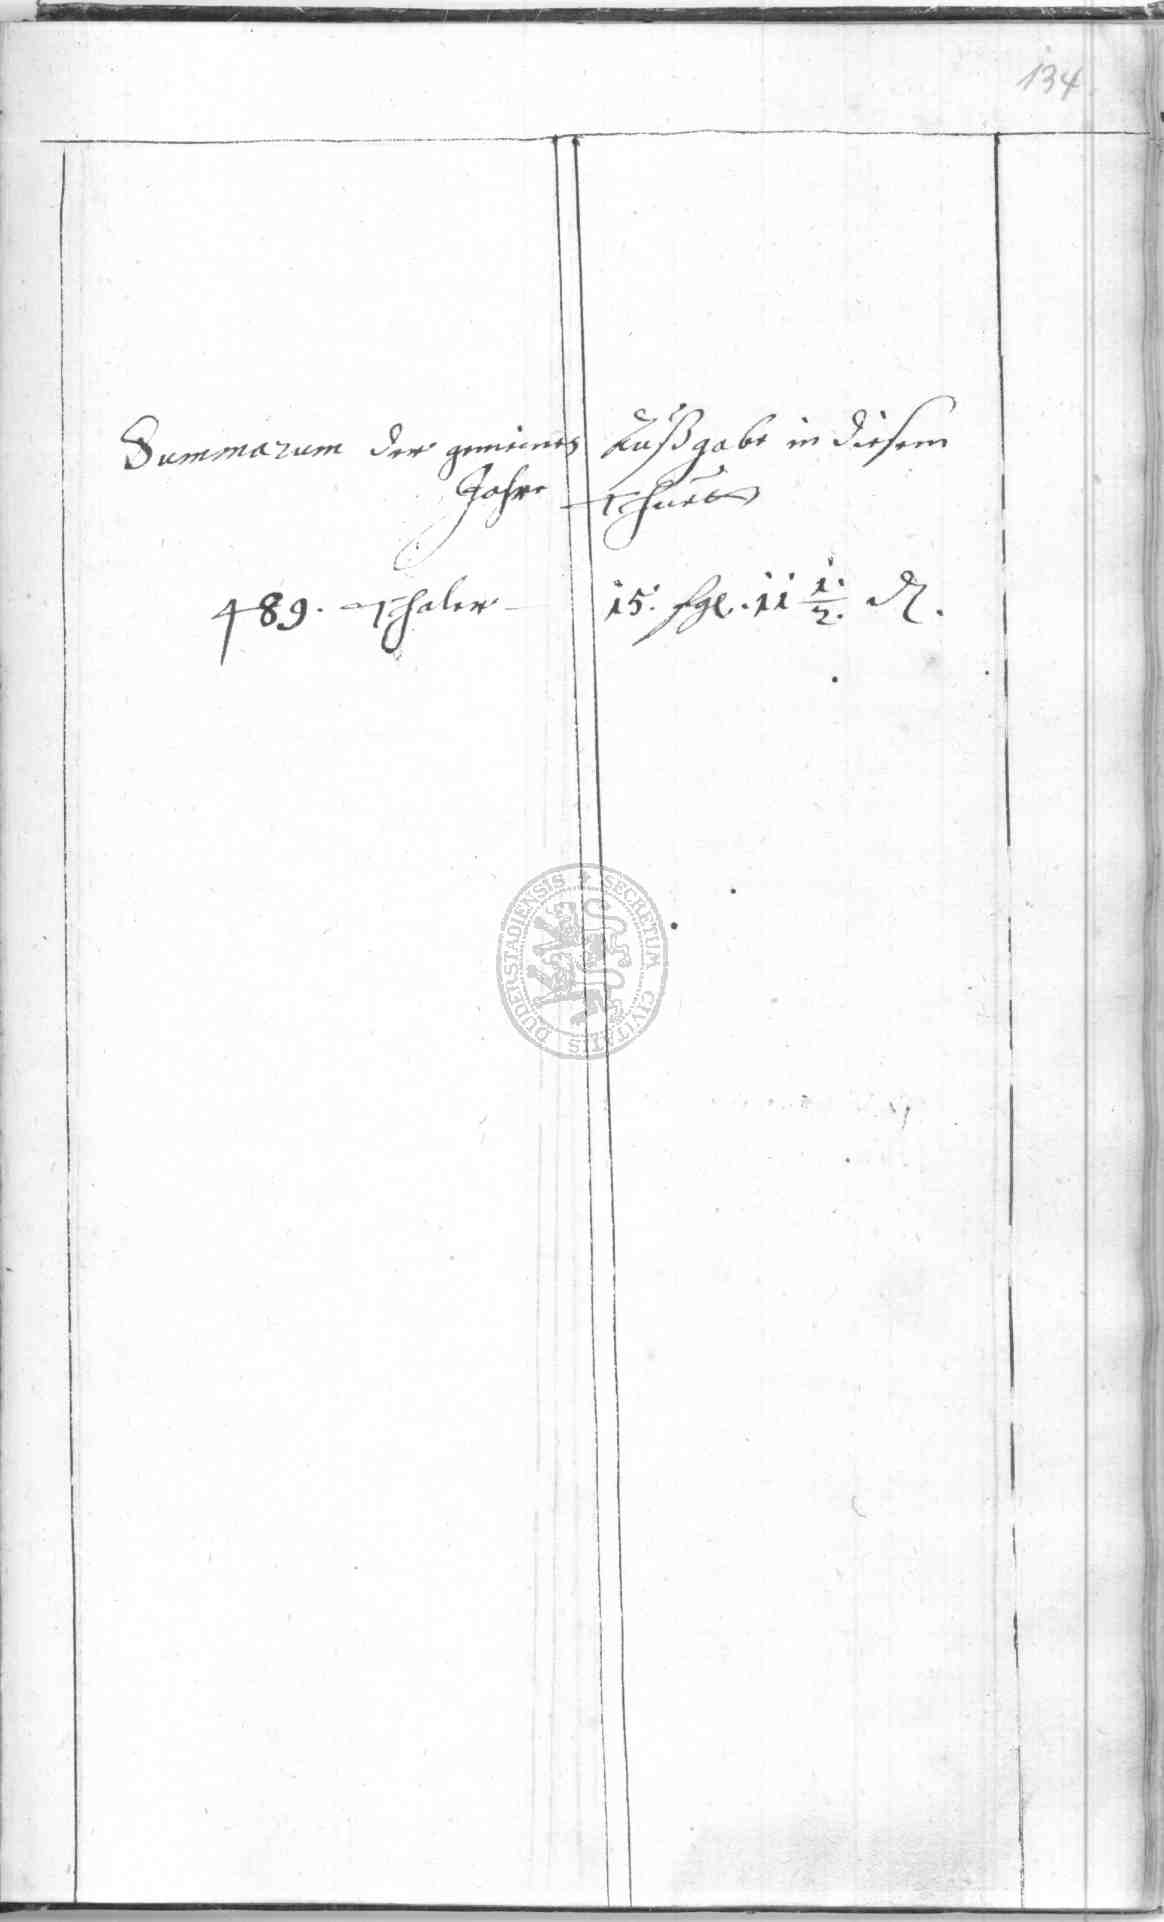 134
Summarum der gemeinen Außgabe in diesem
Jahre thuet
489. Thaler 15. ßgl. 11 1/2. ₰.
SECRETUM CIVITATIS DUDERSTADIENSIS